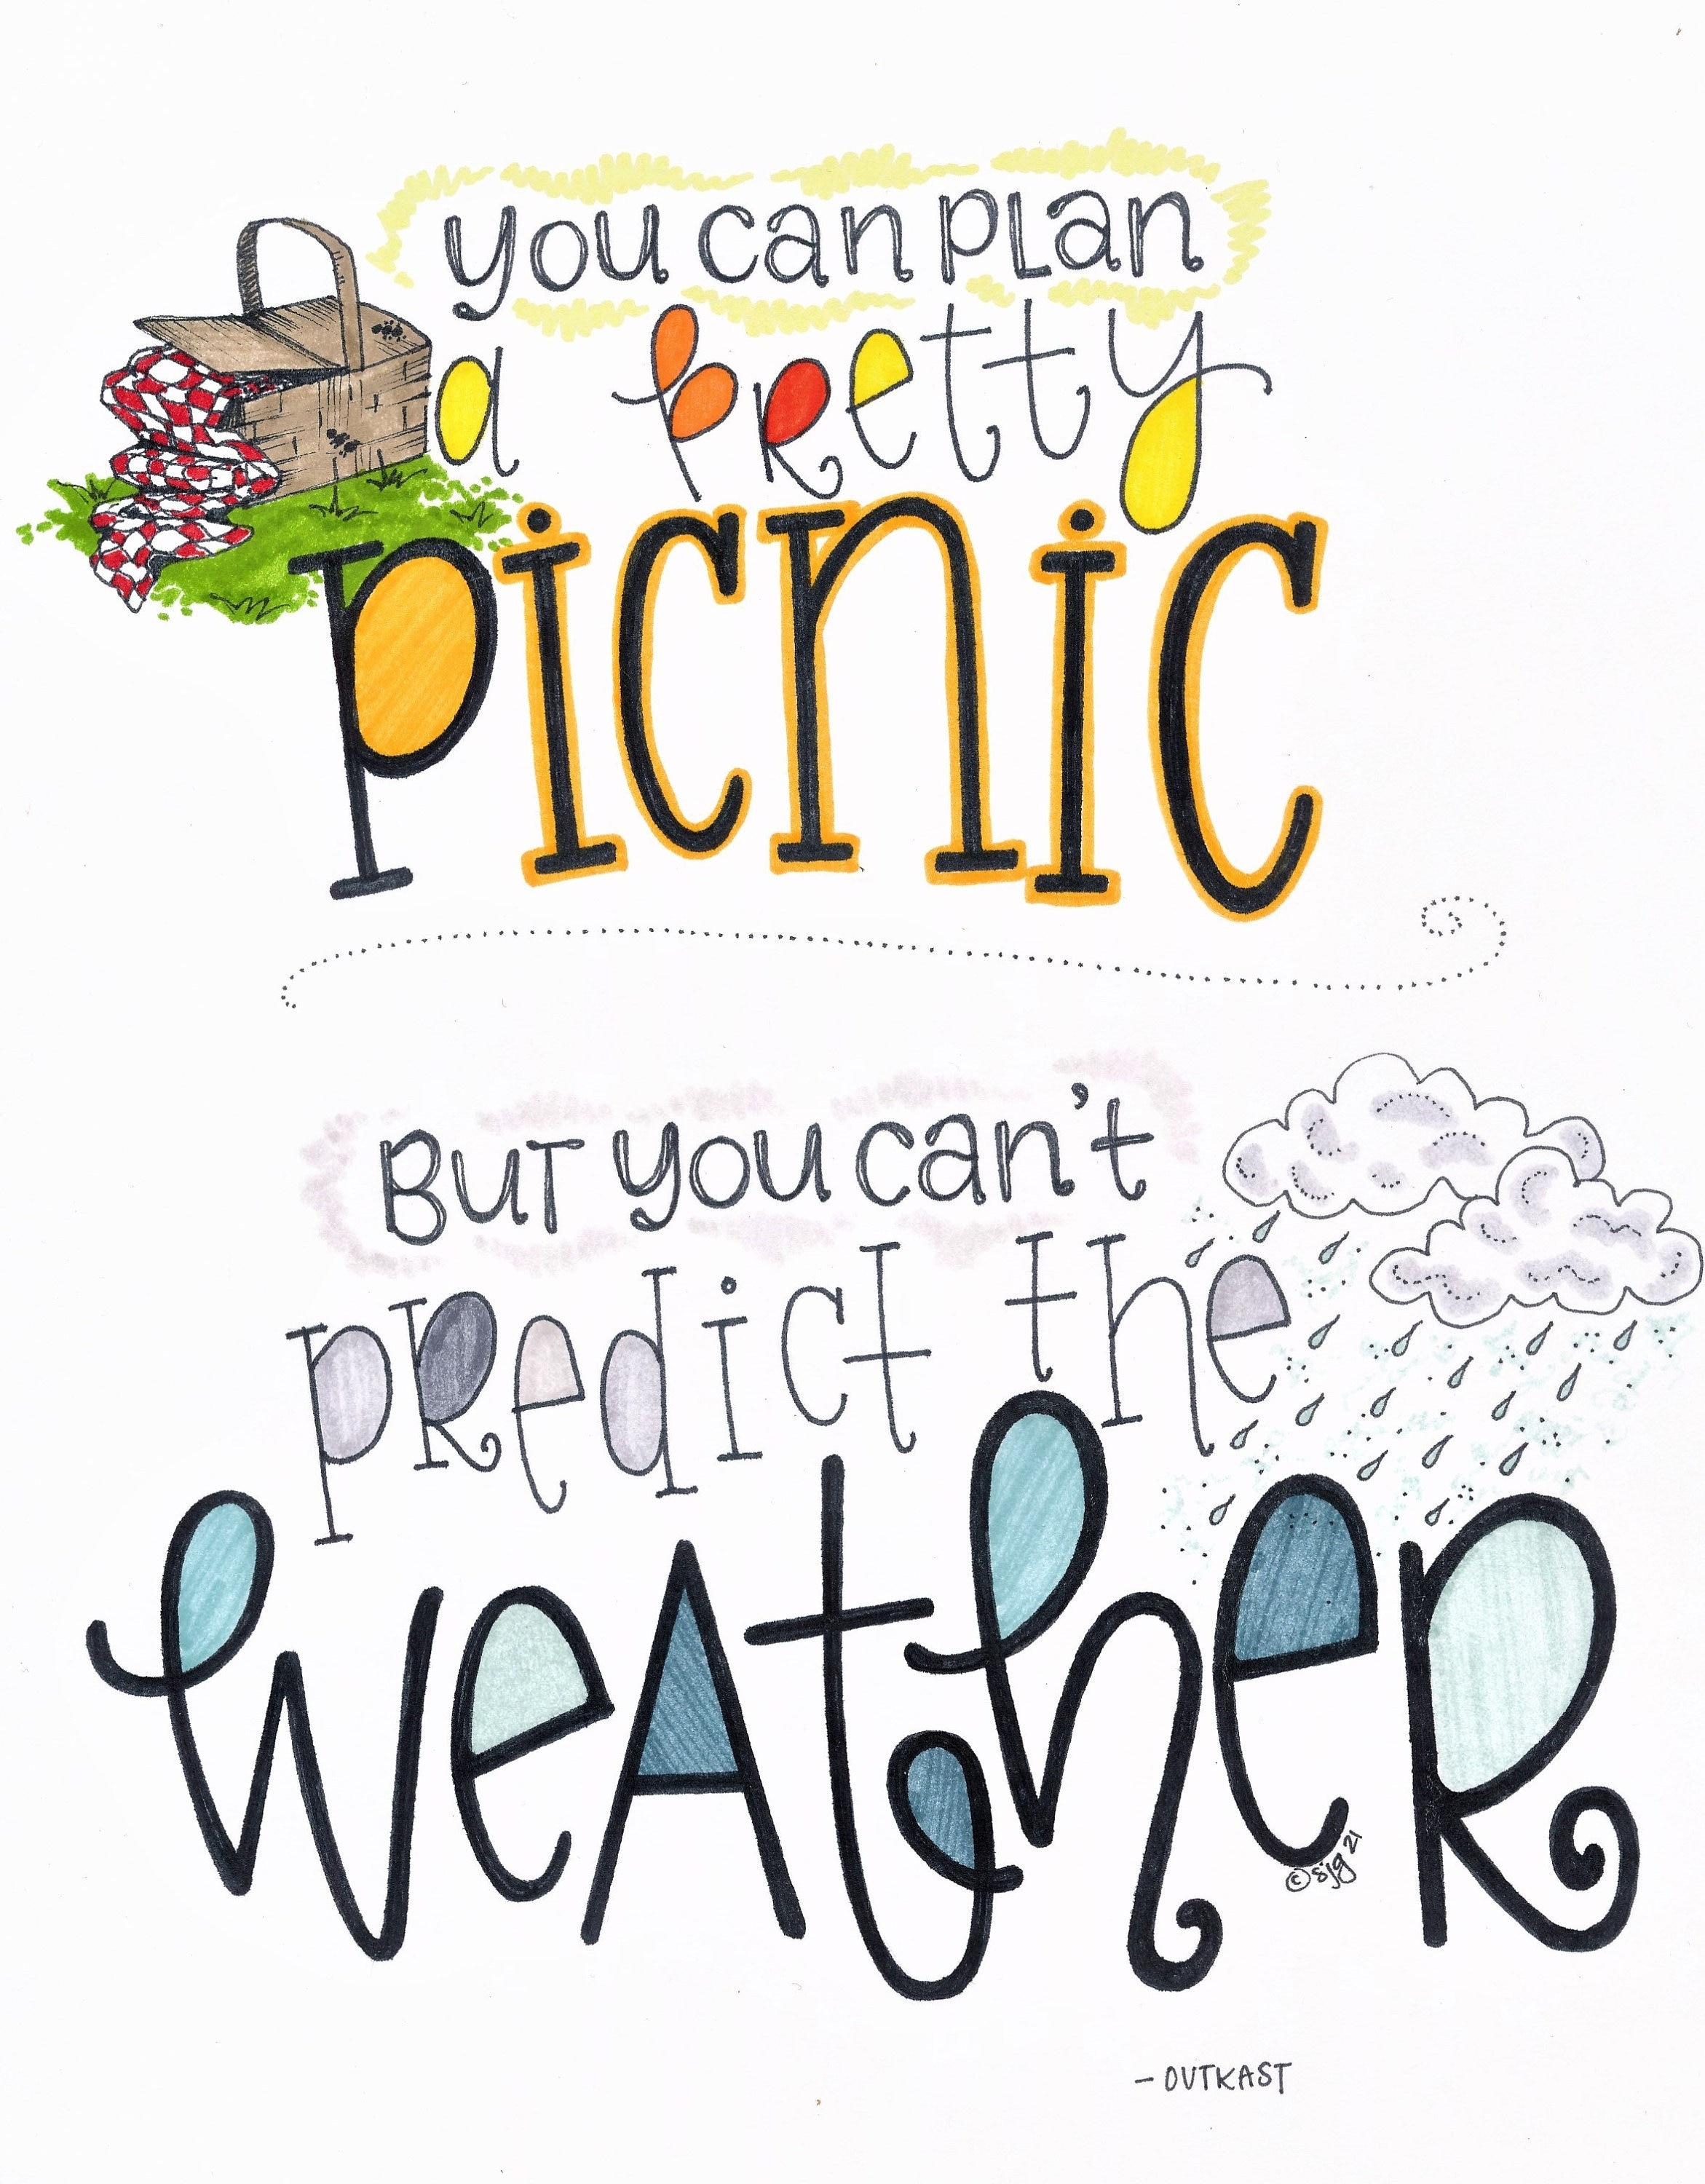 you can plan
a pretty
picnic
But you can't
predict the
weAther
© sjg 21
- OUTKAST